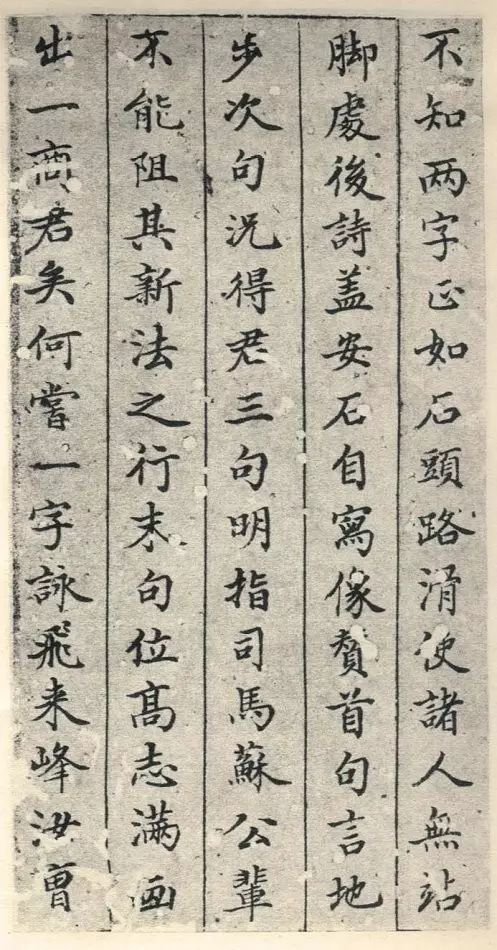 不知两字正如石頭路滑使諸人無站
脚處後詩盖安石自寫像賛首句言地
步次句況得君三句明指司馬蘇公輩
不能阻其新法之行末句位高志滿画
出一商君矣何嘗一字詠飛来峰汝曹